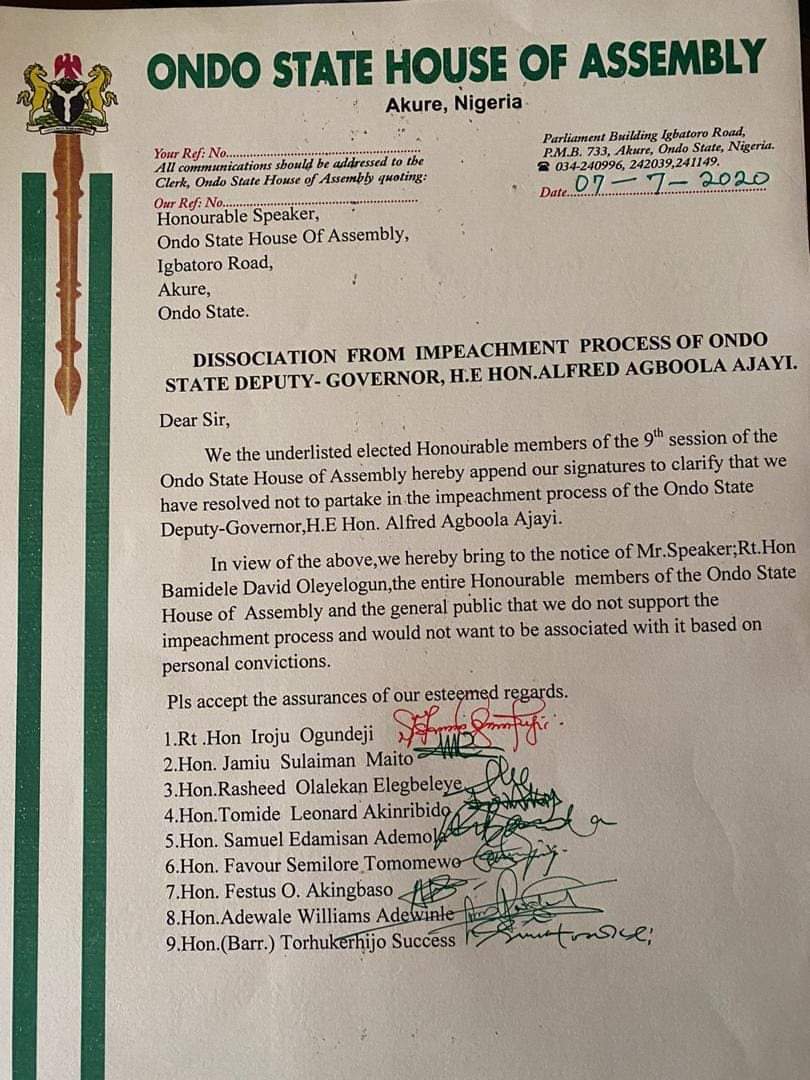 ONDO STATE HOUSE OF ASSEMBLY
Akure, Nigeria
Your Ref: No........................................................
All communications should be addressed to the
Clerk, Ondo State House of Assembly quoting:
Our Ref: No........................................................
Parliament Building Igbatoro Road,
P.M.B. 733, Akure, Ondo State, Nigeria.
☎ 034-240996, 242039,241149.
Date...07-7-2020
Honourable Speaker,
Ondo State House Of Assembly,
Igbatoro Road,
Akure,
Ondo State.
DISSOCIATION FROM IMPEACHMENT PROCESS OF ONDO
STATE DEPUTY- GOVERNOR, H.E HON.ALFRED AGBOOLA AJAYI.
Dear Sir,
We the underlisted elected Honourable members of the 9th session of the
Ondo State House of Assembly hereby append our signatures to clarify that we
have resolved not to partake in the impeachment process of the Ondo State
Deputy-Governor,H.E Hon. Alfred Agboola Ajayi.
In view of the above,we hereby bring to the notice of Mr.Speaker;Rt.Hon
Bamidele David Oleyelogun,the entire Honourable members of the Ondo State
House of Assembly and the general public that we do not support the
impeachment process and would not want to be associated with it based on
personal convictions.
Pls accept the assurances of our esteemed regards.
1.Rt .Hon Iroju Ogundeji
2.Hon. Jamiu Sulaiman Maito
3.Hon.Rasheed Olalekan Elegbeleye
4.Hon.Tomide Leonard Akinribido
5.Hon. Samuel Edamisan Ademola
6.Hon. Favour Semilore Tomomewo
7.Hon. Festus O. Akingbaso
8.Hon.Adewale Williams Adewinle
9.Hon.(Barr.) Torhukerhijo Success